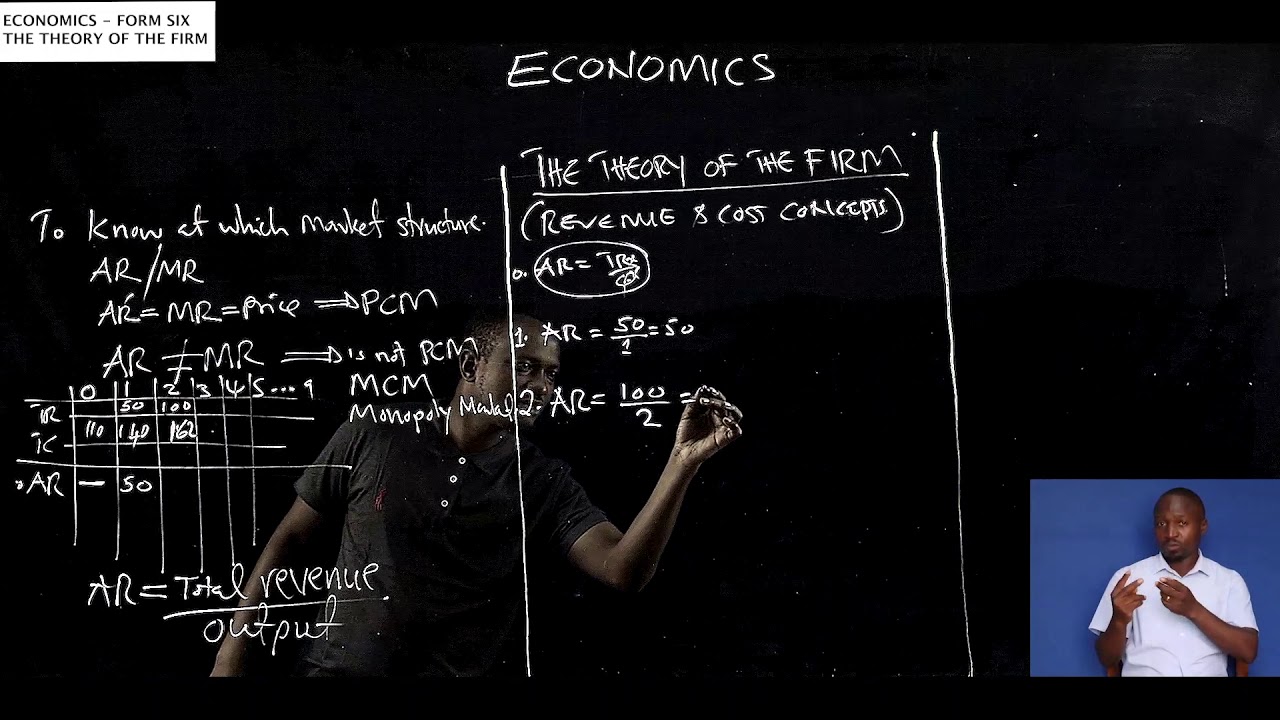 ECONOMICS - FORM SIX
THE THEORY OF THE FIRM
ECONOMICS
To know at which market structure.
AR/MR
AR = MR = price ⟹ PCM
AR ≠ MR ⟹ is not PCM
MCM
Monopoly
0 1 2 3 4 5... 9
TR 50 100
TC 110 140 162
AR — 50
AR = Total revenue
output
THE THEORY OF THE FIRM
(REVENUE & COST CONCEPTS)
0. AR =
1. AR = 50/1 = 50
2. AR = 100/2 =